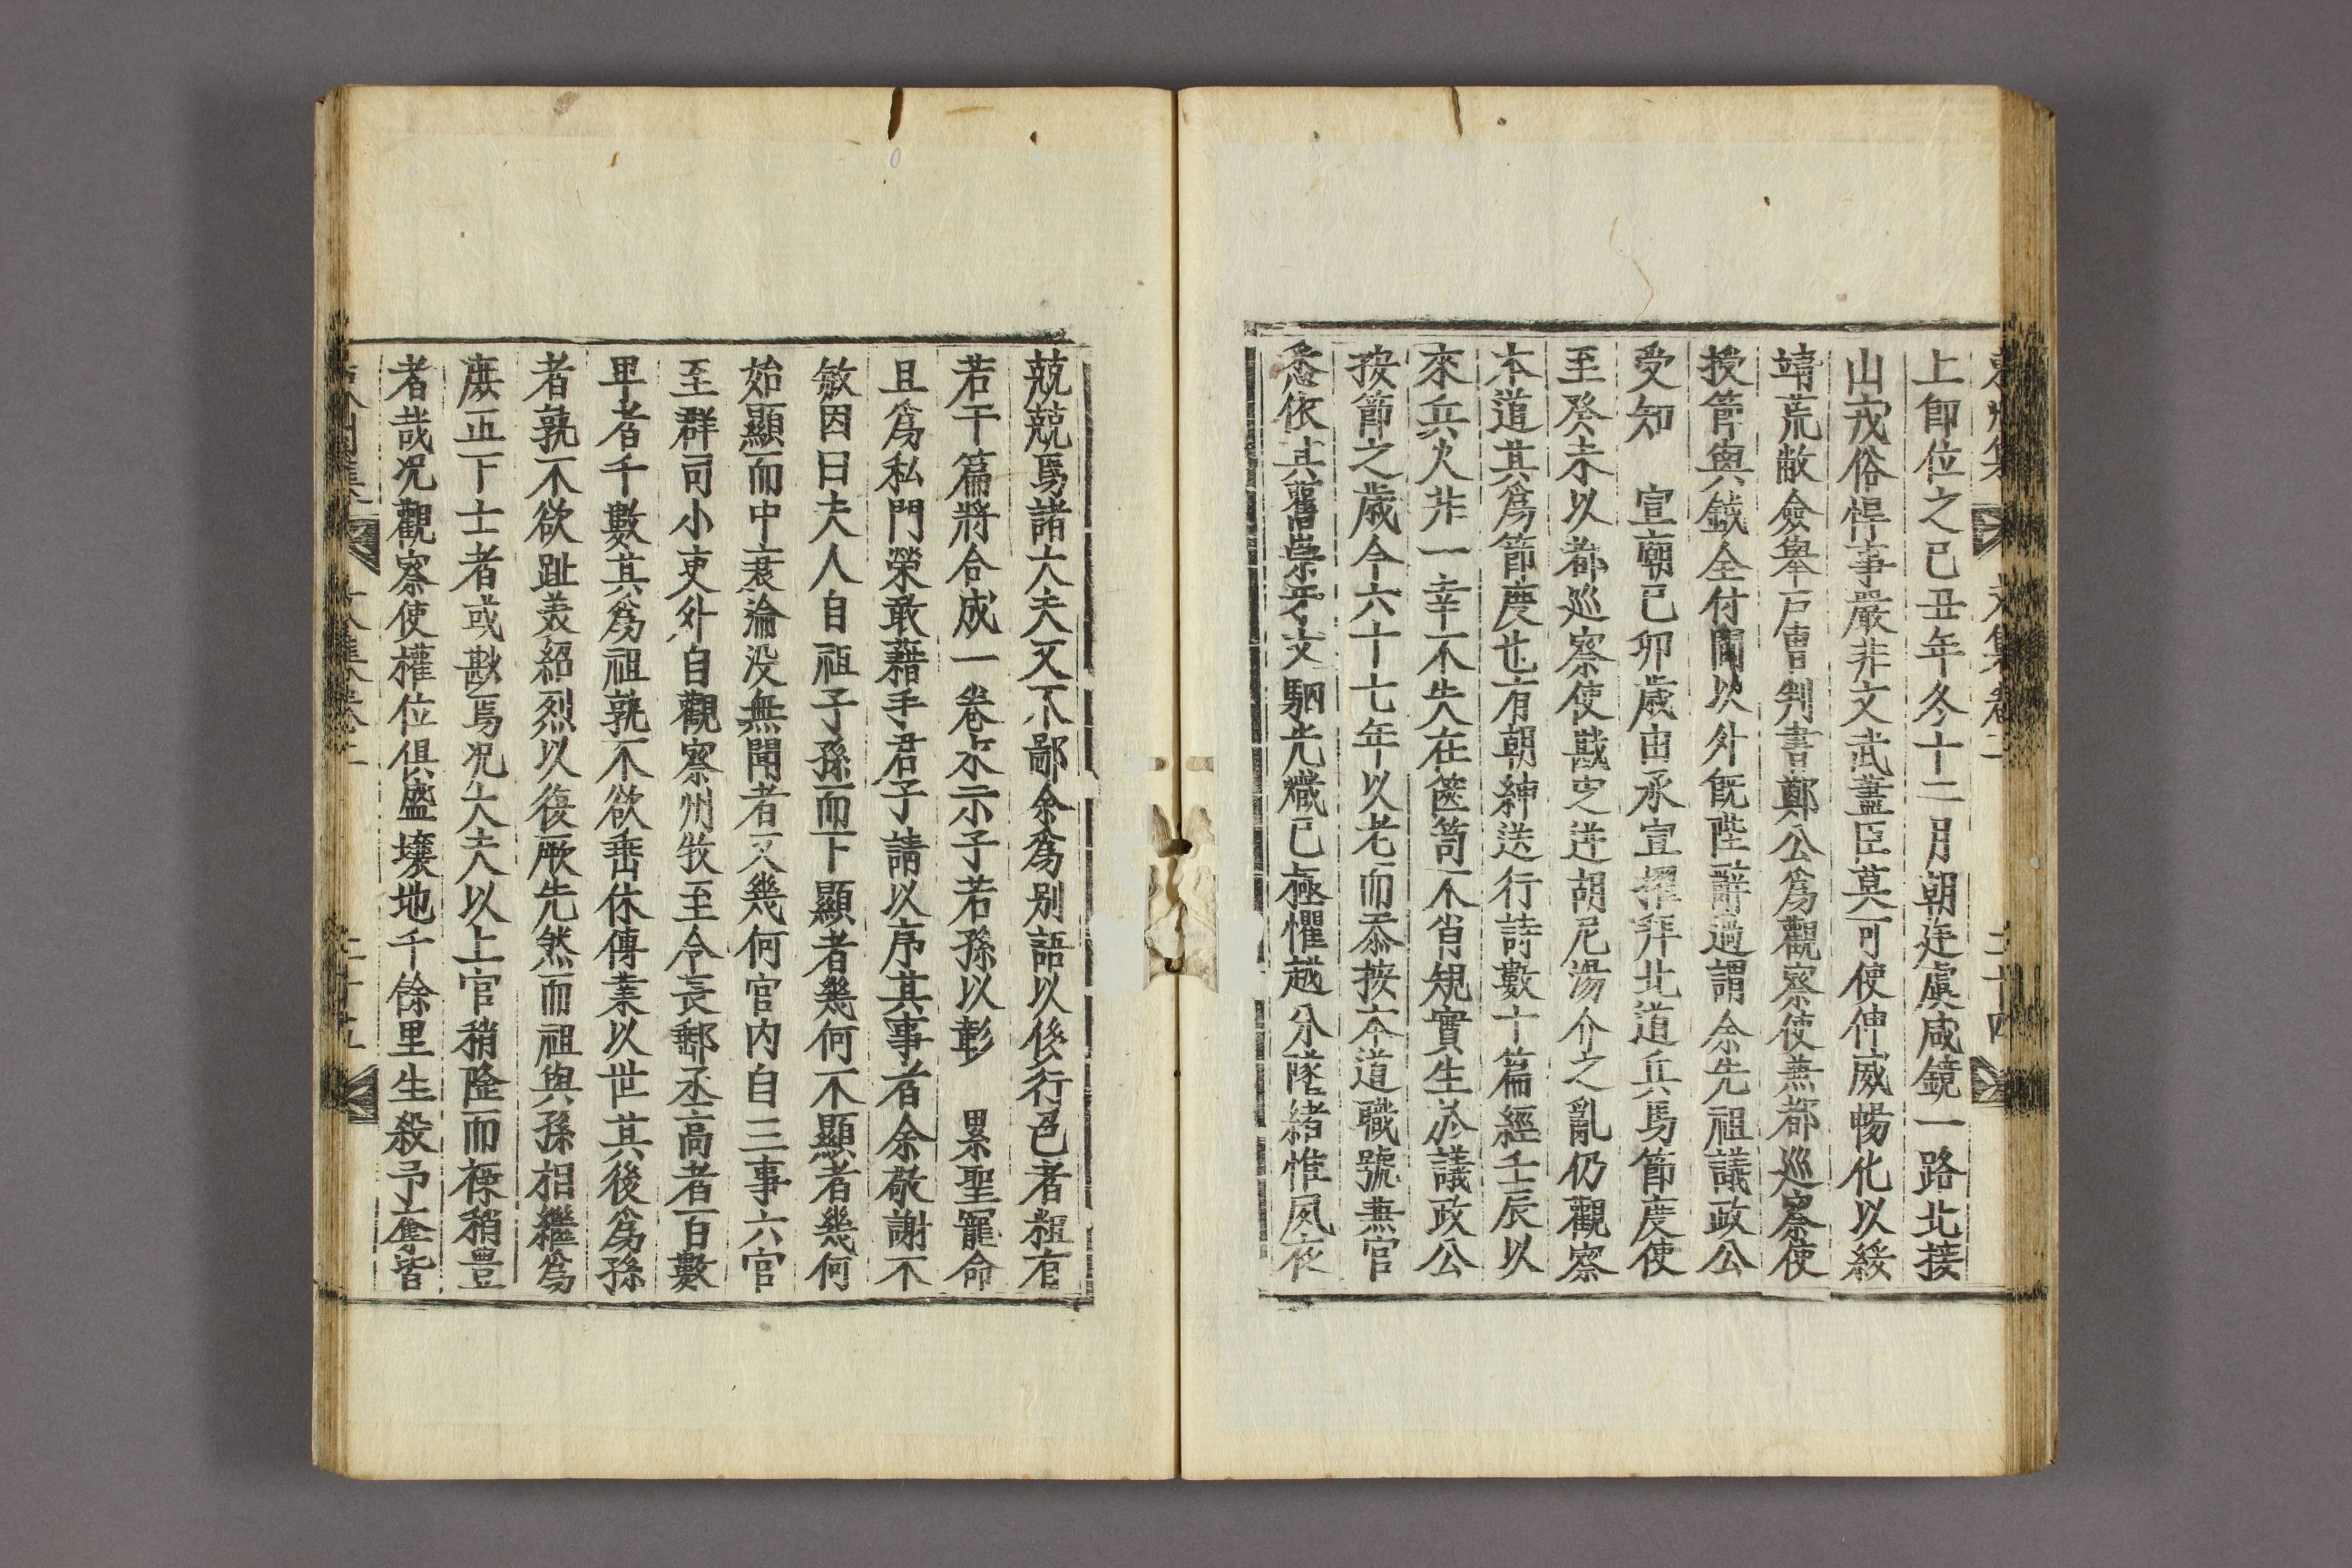 東州集 文集卷二 二十四
上卽位之己丑年冬十二月朝廷虞咸鏡一路北接
山戎俗悍事嚴非文武藎臣莫可使伸威暢化以綏
靖荒敝僉擧戶曹判書鄭公爲觀察使兼都巡察使
授管與鉞全付閫以外旣陛辭過謂余先祖議政公
受知 宣廟已卯歲由承宣擢拜北道兵馬節度使
至癸未以都巡察使戡定逆胡尼湯介之亂仍觀察
本道其爲節度也有朝紳送行詩數十篇經壬辰以
來兵火非一幸不失在篋笥不肖規實生於議政公
按節之歲今六十七年以老而忝按本道職號兼官
悉依其舊崇乎文駟光熾已極懼越分墜緖惟夙夜
兢兢焉諸大夫又不鄙余爲別語以侈行邑者粗有
若干篇將合成一卷氶示子若孫以彰 累聖寵命
且爲私門榮敢藉手君子請以序其事者余敬謝不
敏因曰夫人自祖子孫而下顯者幾何不顯者幾何
始顯而中衰淪沒無聞者又幾何官內自三事六官
至群司小吏外自觀察州牧至令長郵丞高者百數
卑者千數其爲祖孰不欲垂休傳業以世其後爲孫
者孰不欲趾美紹烈以復厥先然而祖與孫相繼爲
庶正下士者或尠焉况大夫以上官稍隆而祿稍豊
者哉况觀察使權位俱盛壤地千餘里生殺予奪皆
東州集 文集卷二 二十五